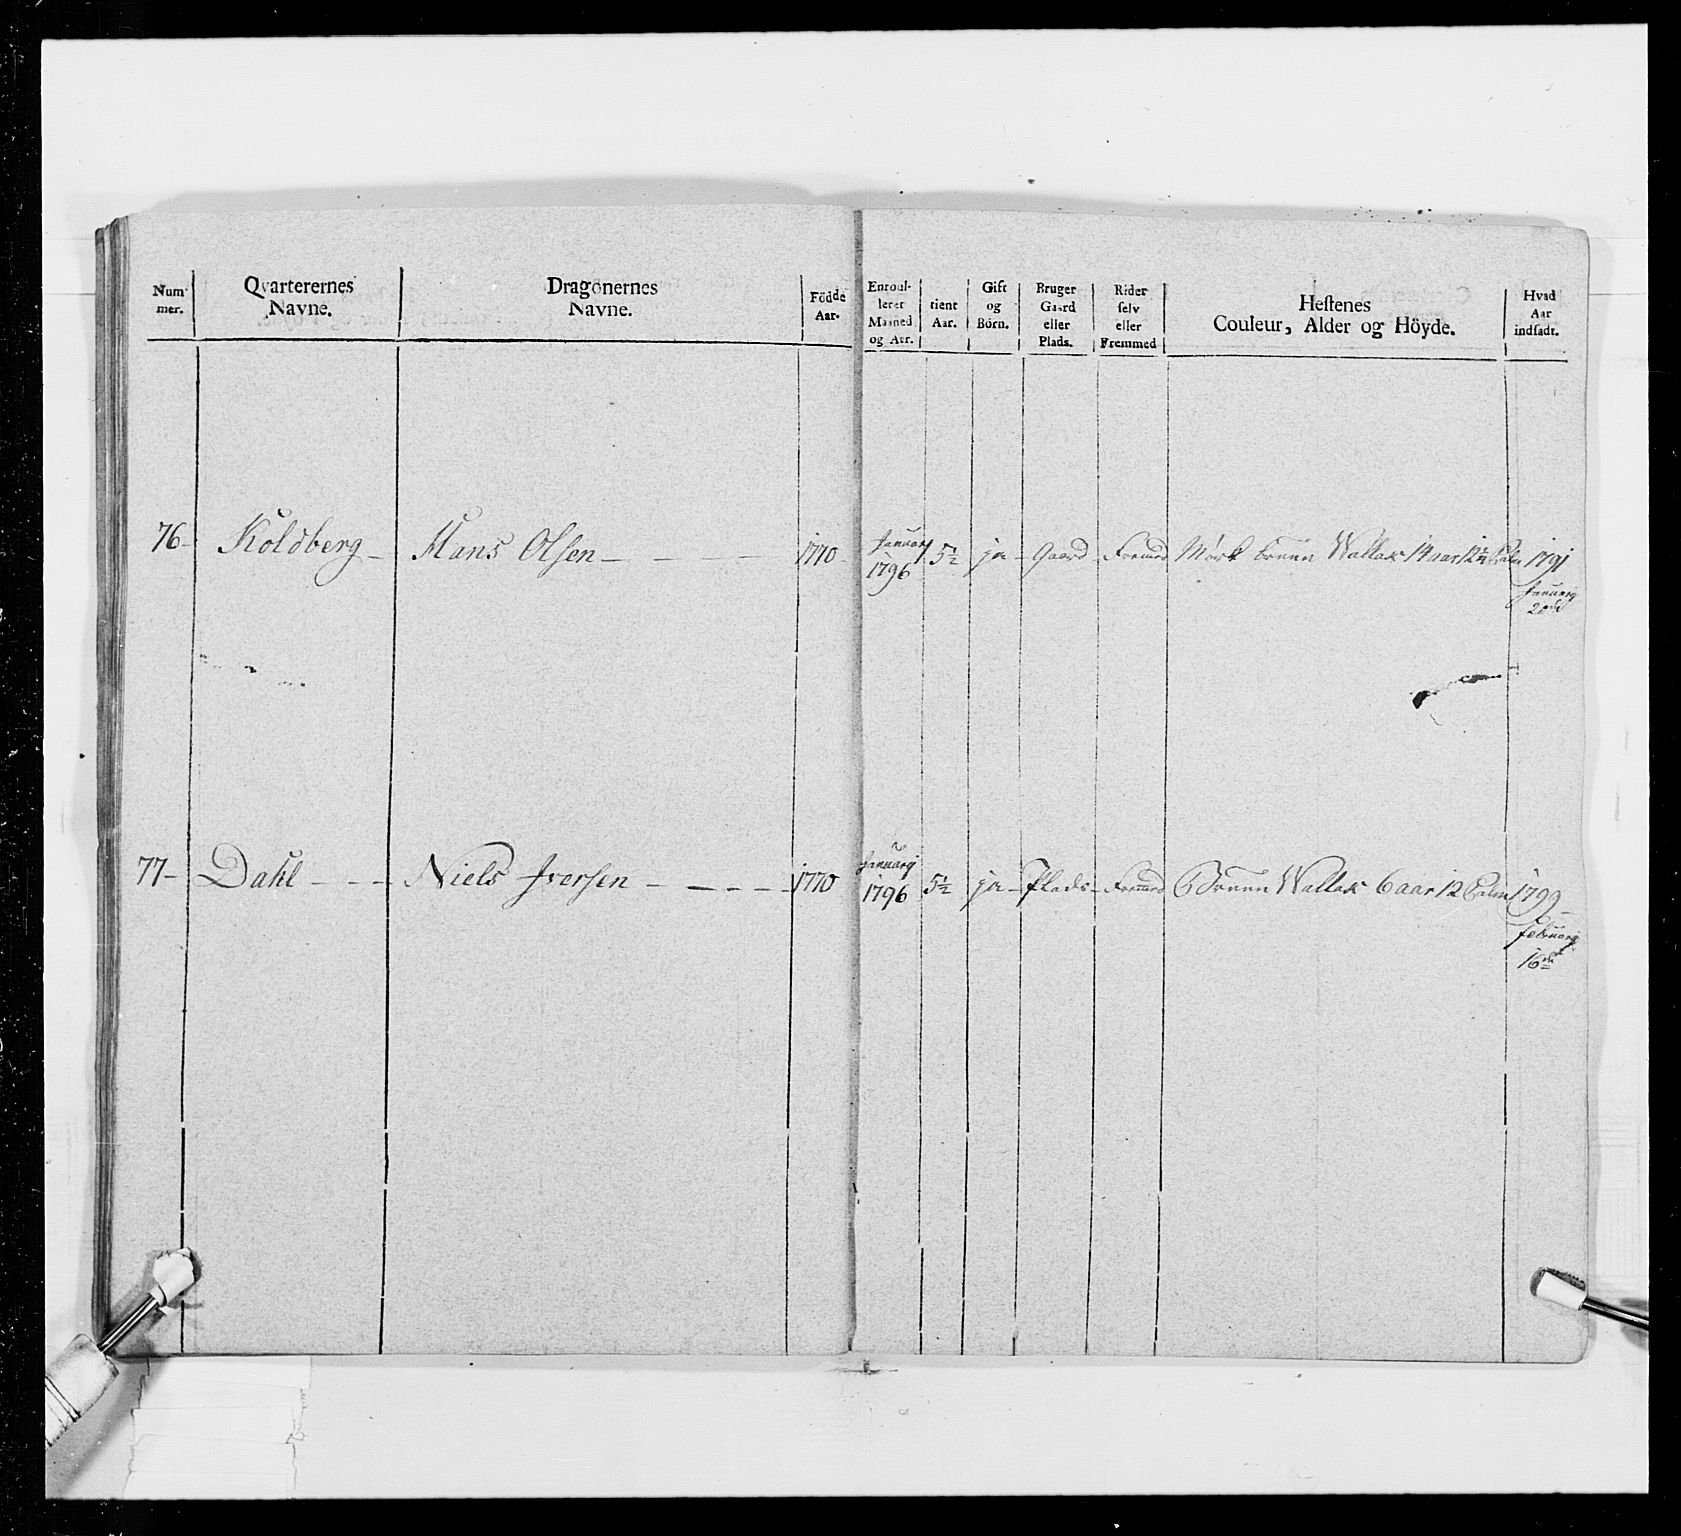 Num mer. Qvarterernes Navne. Dragonernes Navne. Födde Aar. Enroul- lerer Maaned og Aar. tient Aar. Gift og Börn. Bruger Gaard eller Plads. Rider selv eller Fremmed Hestenes Couleur, Alder og Höyde. Hvad Aar indsadt.
76 - Koldberg - Hans Olsen - - - - 1770 Januarj 1796 5½ ja - Gaard - Fremed Mörk bruun Wallak 14 aar 12½ Palm 1791 Januarj 20de
77 - Dahl - - - Niels Iversen - - - - - 1770 Januarj 1796 5½ ja - Plads - Fremed Bruun Wallak 6 aar 12 Palm 1799 Februarj 16de